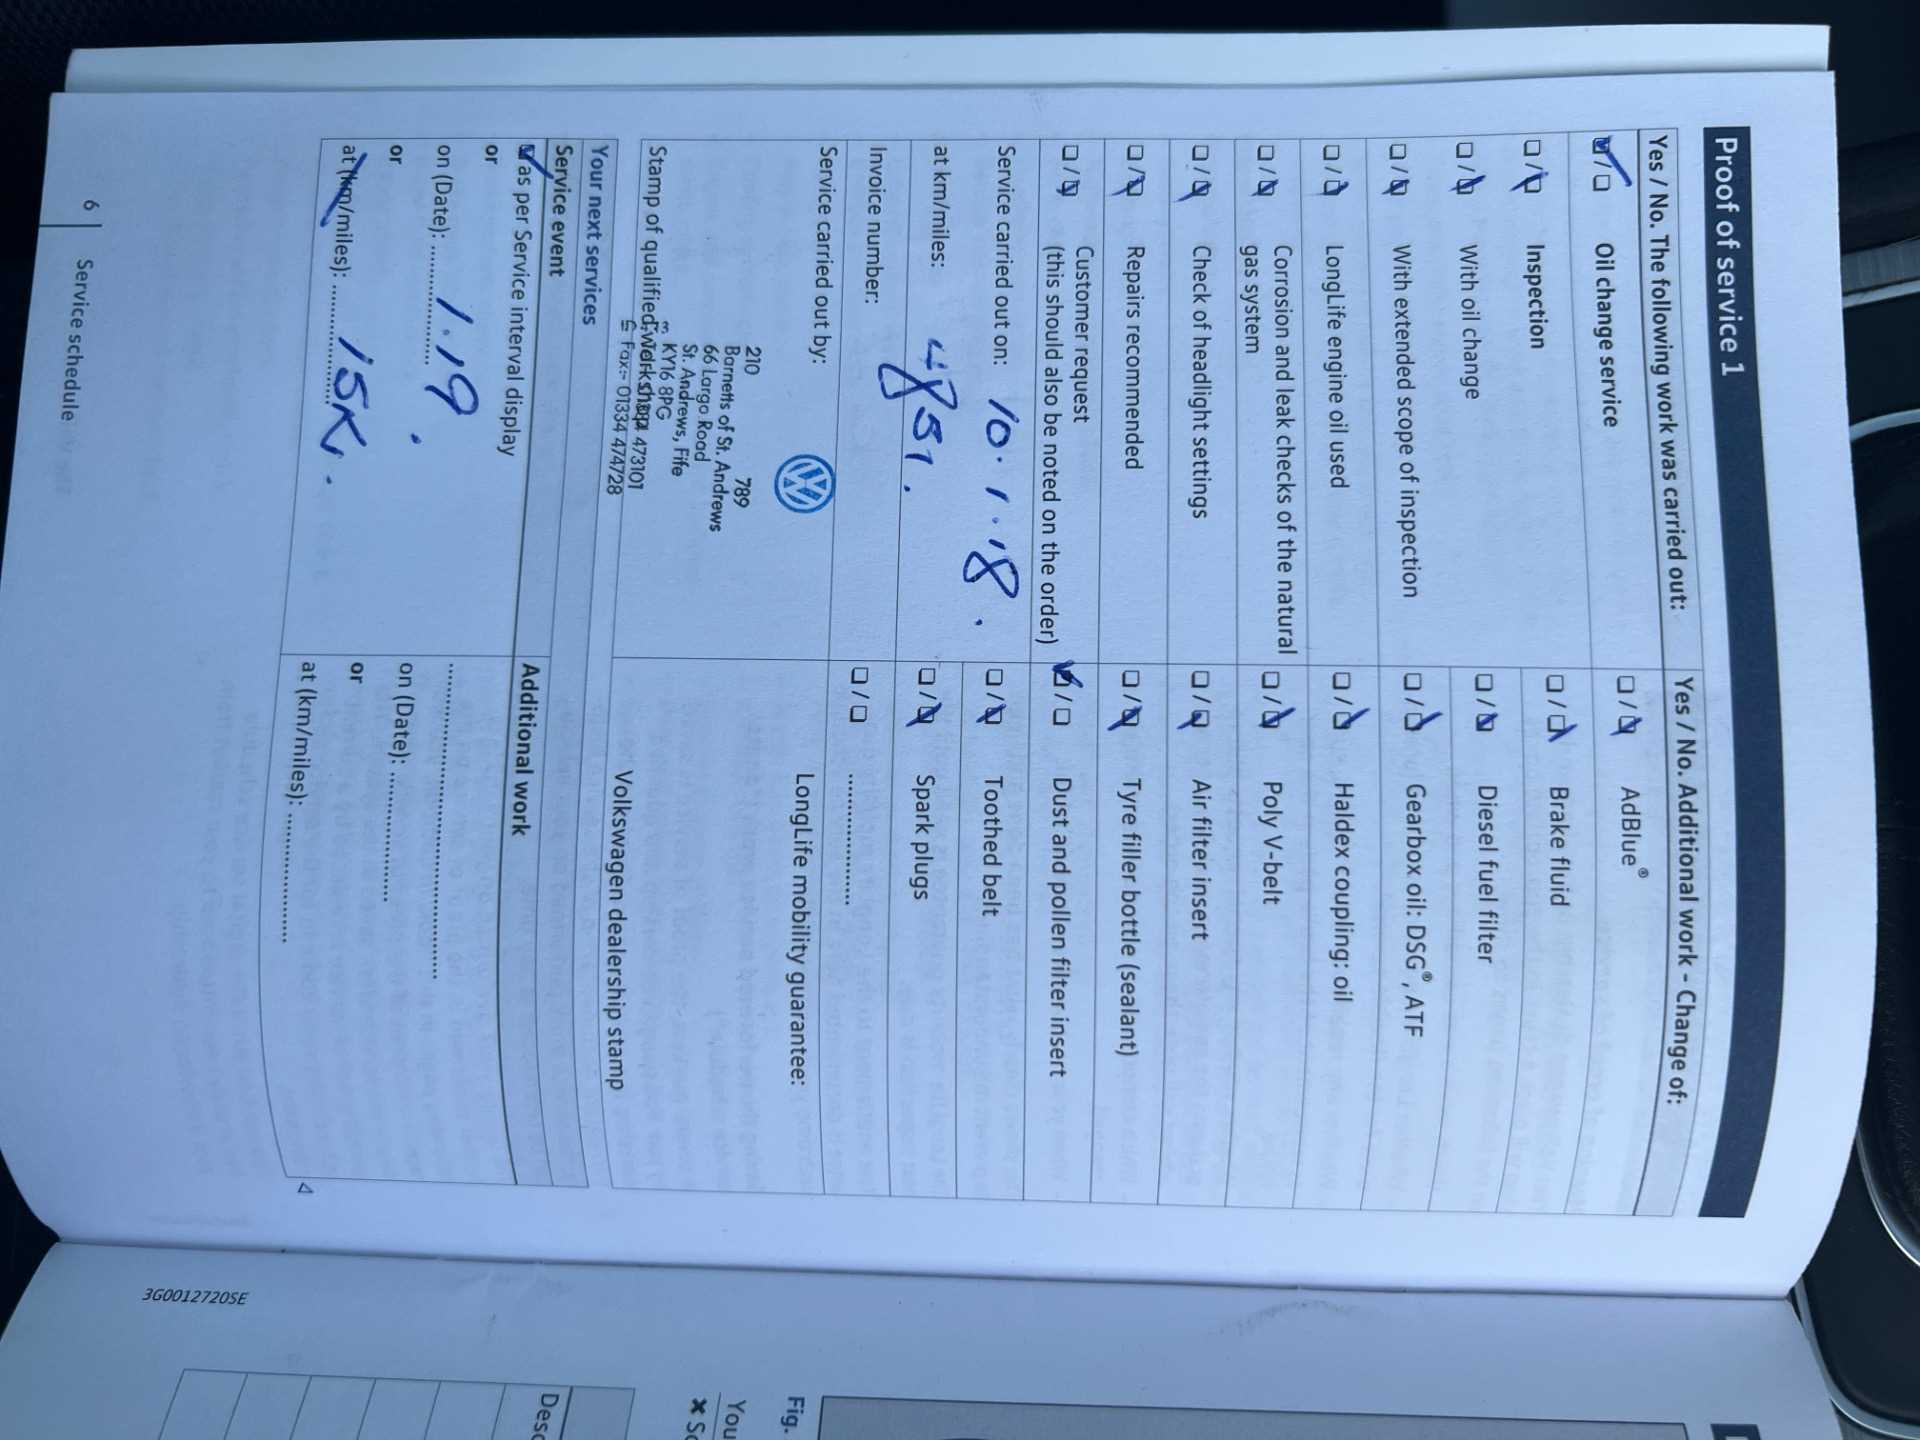 Proof of service 1
Yes / No. The following work was carried out:
Oil change service
Inspection
With oil change
With extended scope of inspection
LongLife engine oil used
Corrosion and leak checks of the natural
gas system
Check of headlight settings
Repairs recommended
Customer request
(this should also be noted on the order)
Service carried out on: 10.1.18.
at km/miles: 4851.
Invoice number:
Service carried out by:
210 789
Barnetts of St. Andrews
66 Largo Road
St. Andrews, Fife
KY16 8PG
473101
Fax:- 01334 474728
Stamp of qualified workshop
Yes / No. Additional work - Change of:
AdBlue®
Brake fluid
Diesel fuel filter
Gearbox oil: DSG®, ATF
Haldex coupling: oil
Poly V-belt
Air filter insert
Tyre filler bottle (sealant)
Dust and pollen filter insert
Toothed belt
Spark plugs
LongLife mobility guarantee:
Volkswagen dealership stamp
Your next services
Service event
as per Service interval display
or
on (Date): 1.19.
or
at (km/miles): 15K.
Additional work
on (Date):
or
at (km/miles):
6 Service schedule
3G0012720SE
Fig.
You
Desc